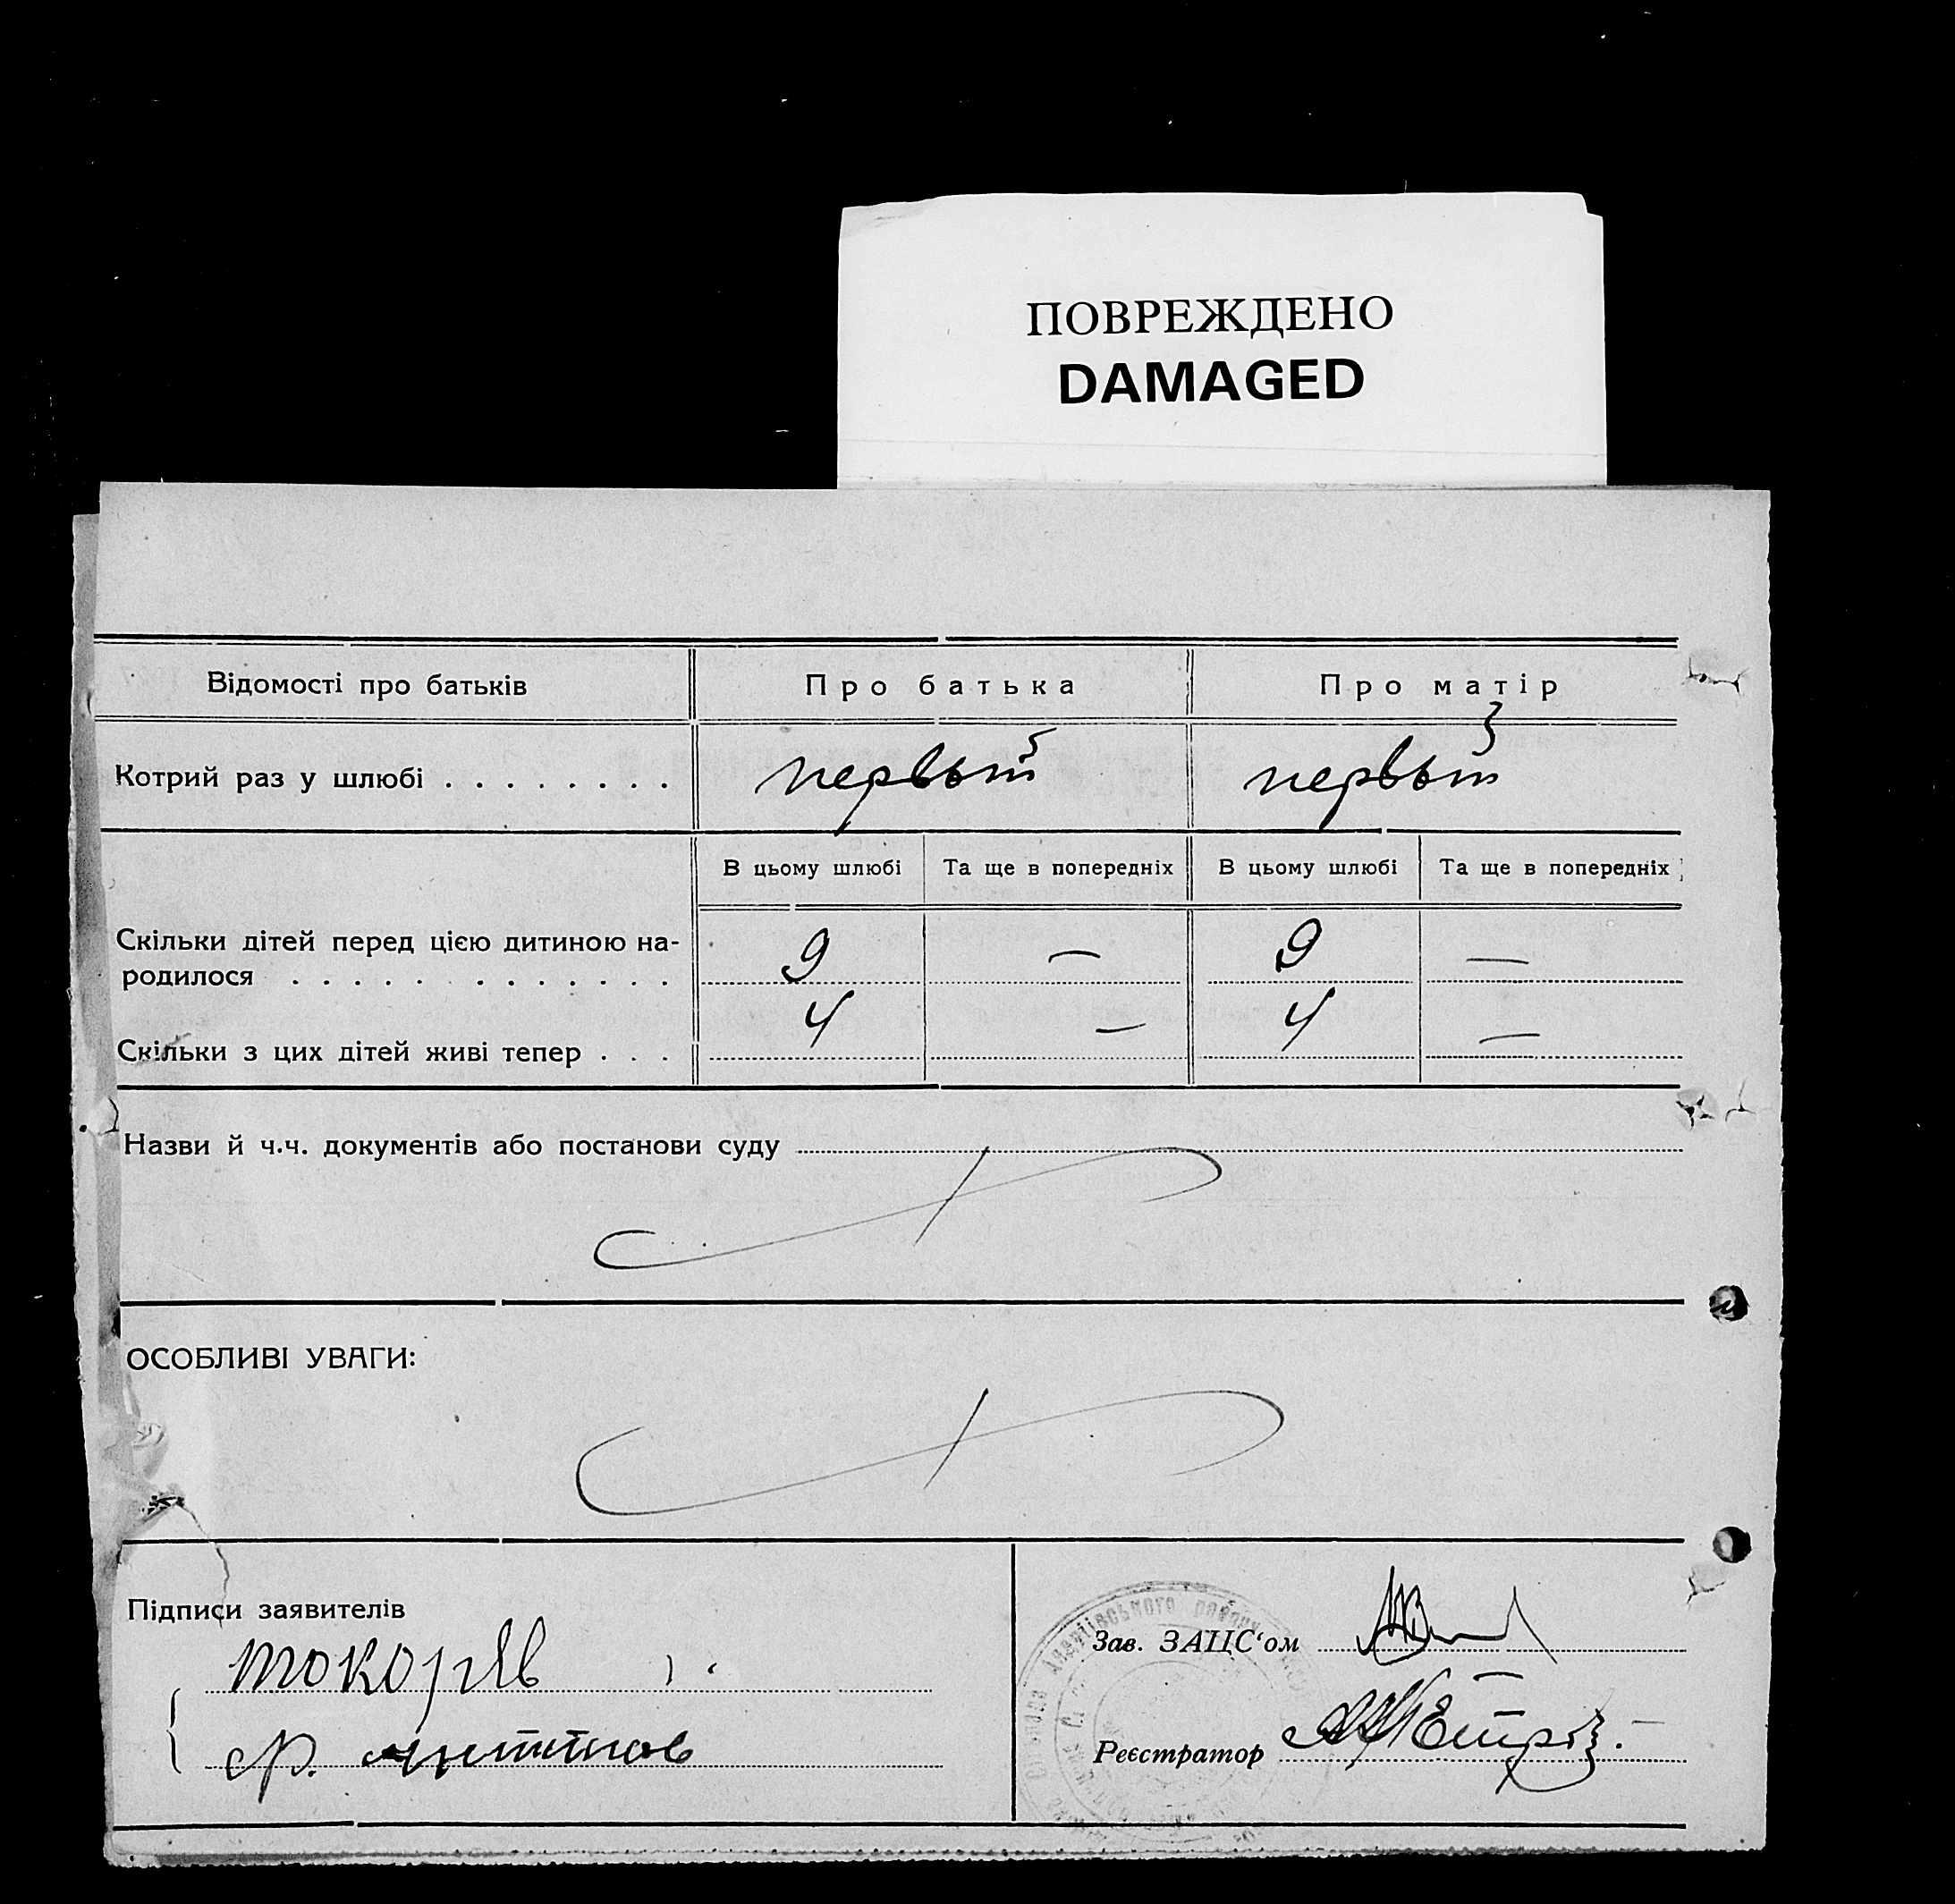 ПОВРЕЖДЕНО
DAMAGED
Відомості про батьків Про батька Про матір
Котрий раз у шлюбі . . . . . . . . первый первый
В цьому шлюбі Та ще в попередніх В цьому шлюбі Та ще в попередніх
Скільки дітей перед цією дитиною на-
родилося . . . . . . . . . . . . . 9 — 9 —
Скільки з цих дітей живі тепер . . . 4 — 4 —
Назви й ч.ч. документів або постанови суду
ОСОБЛИВІ УВАГИ:
Підписи заявителів
Зав. ЗАЦС‘ом
Реєстратор